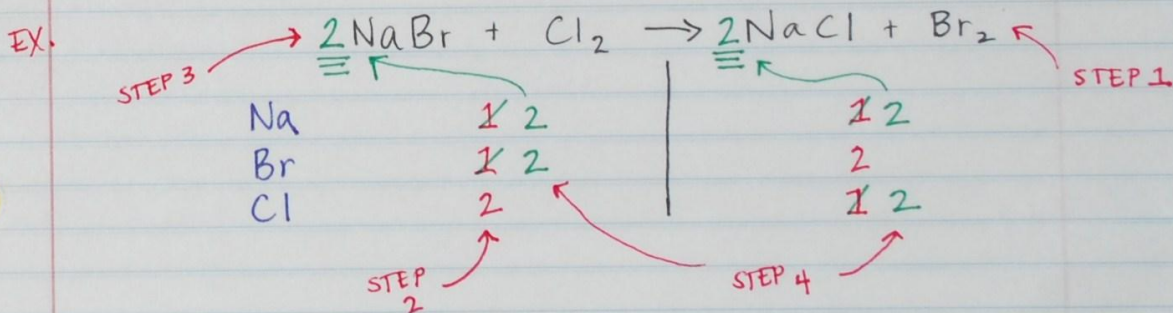 EX. 2NaBr + Cl₂ → 2NaCl + Br₂
STEP 3
STEP 1
Na 1 2 1 2
Br 1 2 2
Cl 2 1 2
STEP 2
STEP 4